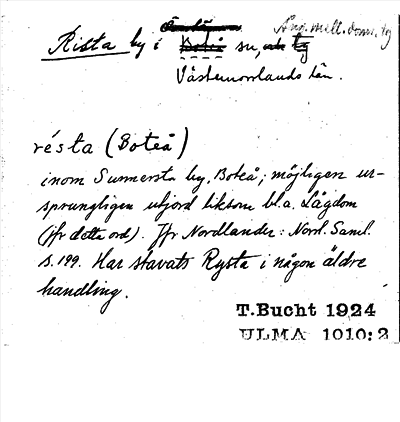 Ång. mell. doms. tg
Rista by i Boteå sn, och tg
Västernorrlands län.
résta (Boteå)
inom Sunnersta by, Boteå; möjligen ur-
sprungligen utjord liksom bl.a. Lågdom
(jfr detta ord). Jfr Nordlander: Norrl. Saml.
s. 199. Har stavats Rysta i någon äldre
handling.
T.Bucht 1924
ULMA 1010:2